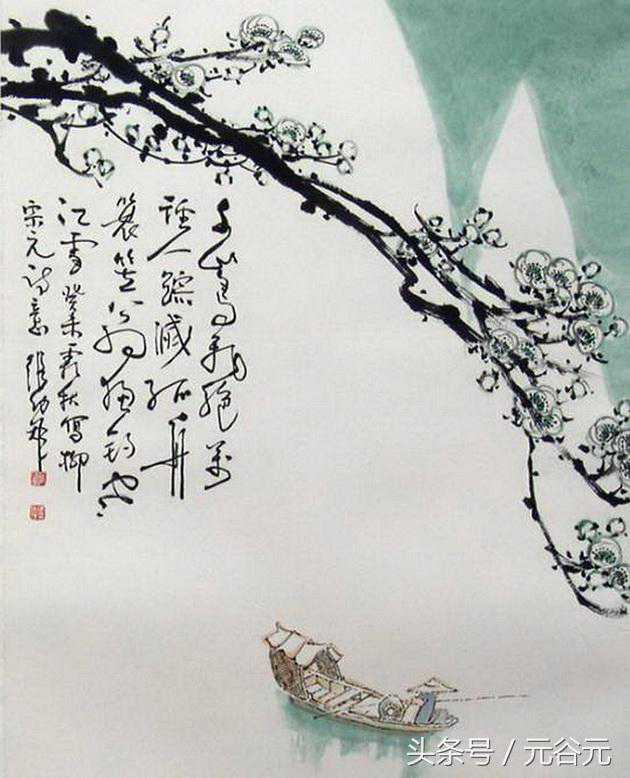 千山鸟飞绝万
径人踪滅孤舟
蓑笠翁独钓寒
江雪癸未秋写柳
宗元诗意张
头条号 / 元谷元